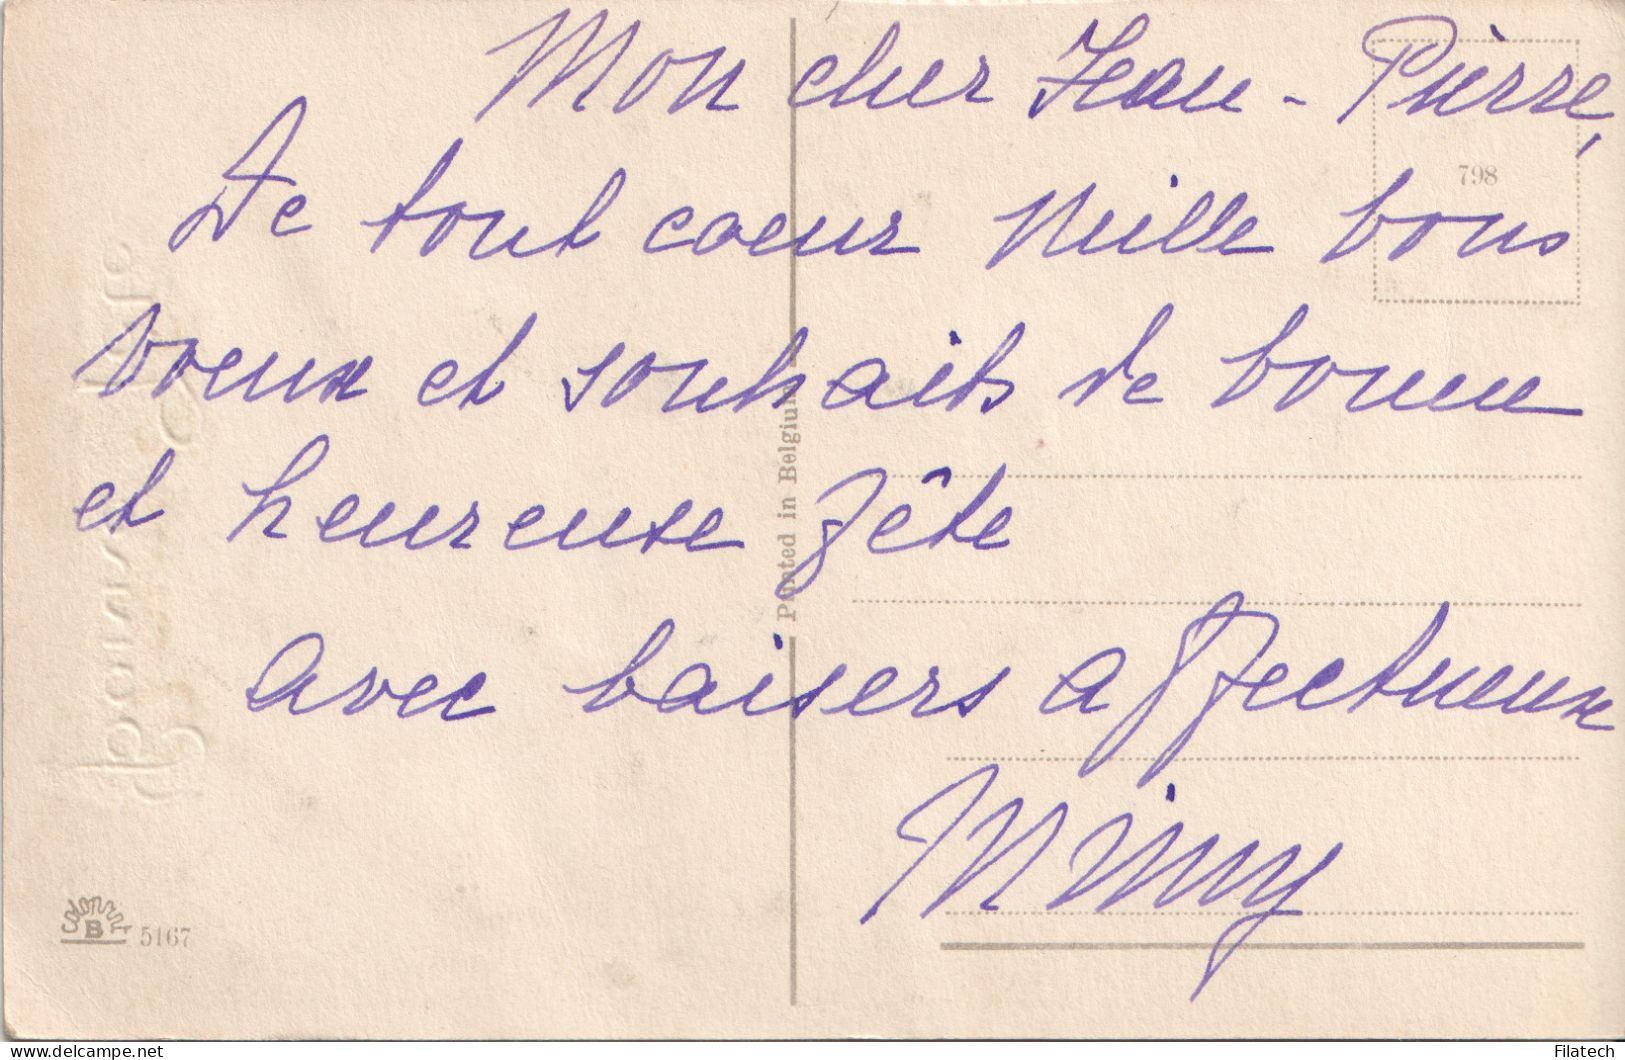 Mon cher Jean-Pierre,
798
De tout coeur Mille bons
voeux et souhaits de bonne
et heureuse fête
avec baisers affectueux
Mimy
Printed in Belgium
B 5167
Filatech